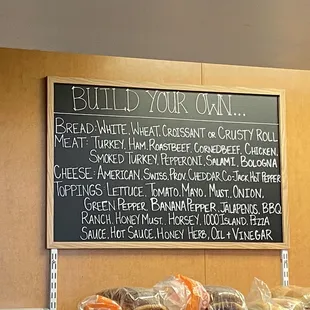 BUILD YOUR OWN...
BREAD: WHITE, WHEAT, CROISSANT OR CRUSTY ROLL
MEAT: TURKEY, HAM, ROASTBEEF, CORNEDBEEF, CHICKEN,
SMOKED TURKEY, PEPPERONI, SALAMI, BOLOGNA
CHEESE: AMERICAN, SWISS, PROV, CHEDDAR, CO-JACK, HOT PEPPER
TOPPINGS: LETTUCE, TOMATO, MAYO, MUST., ONION,
GREEN PEPPER, BANANA PEPPER, JALAPENOS, BBQ
RANCH, HONEY MUST., HORSEY, 1000 ISLAND, PIZZA
SAUCE, HOT SAUCE, HONEY HERB, OIL + VINEGAR